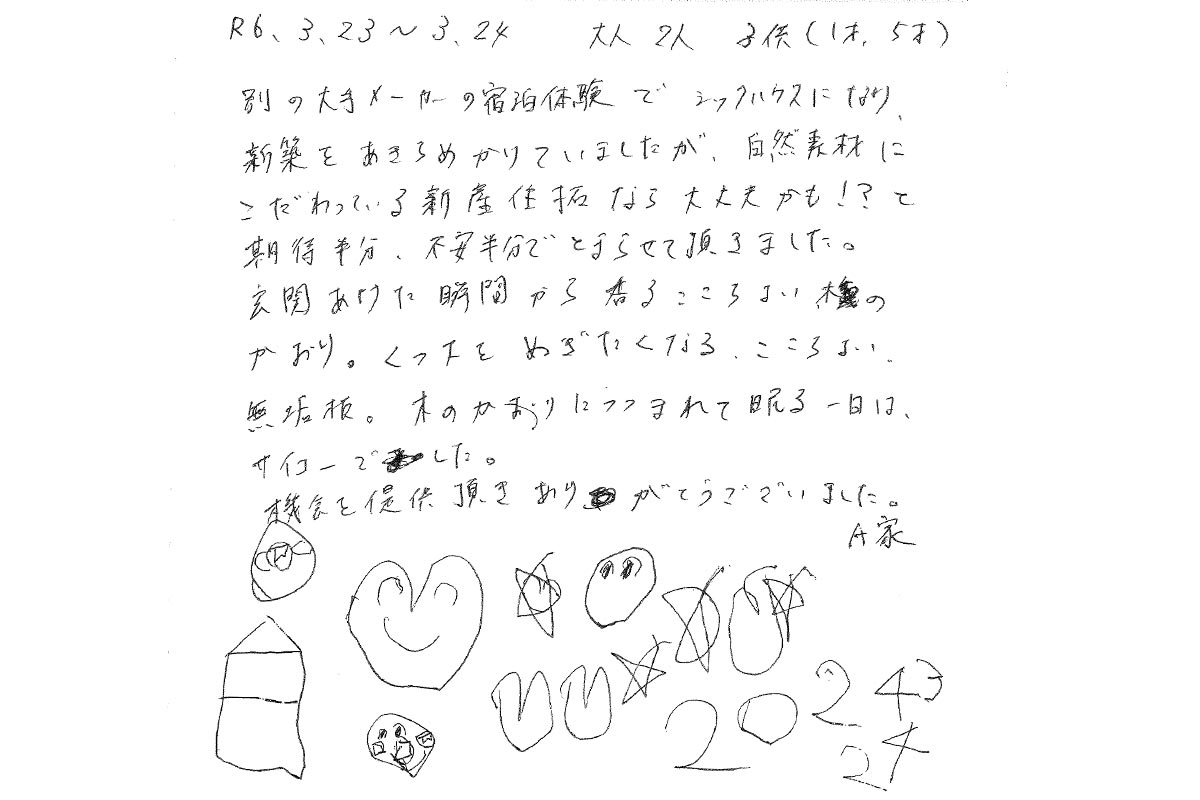 R6、3、23～3、24　大人 2人　子供(1才、5才)
別の大手メーカーの宿泊体験で シックハウスになり、
新築をあきらめかけていましたが、自然素材に
こだわっている新産住拓なら大丈夫かも!?と
期待半分、不安半分でとまらせて頂きました。
玄関あけた瞬間から香るこころよい の
かおり。くつ下をぬぎたくなる、こころよい、
無垢板。木のかおりにつつまれて眠る一日は、
サイコーでした。
機会を提供頂きありがとうございました。
A家
20 24 3
24